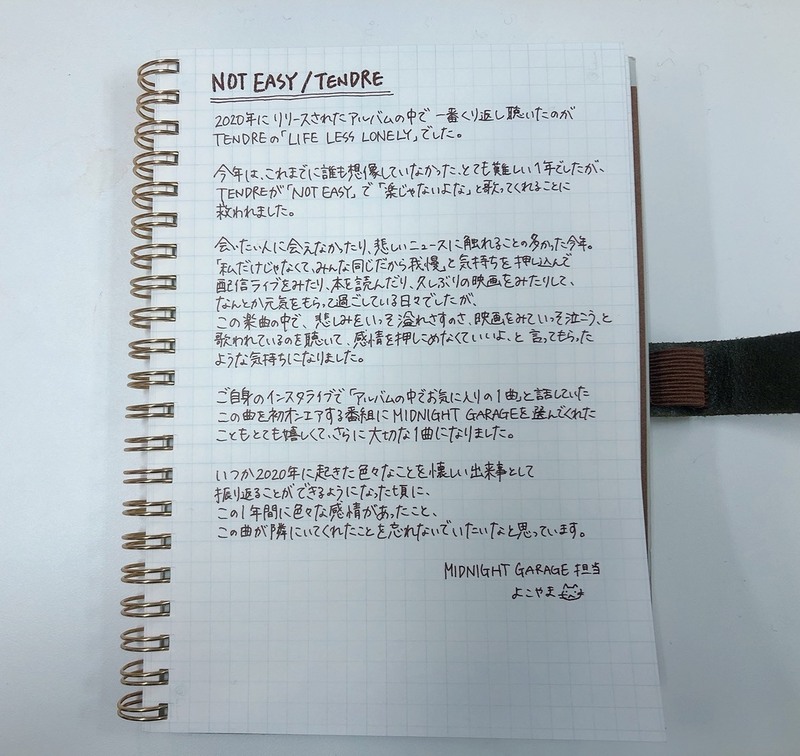 NOT EASY / TENDRE
2020年にリリースされたアルバムの中で一番くり返し聴いたのが
TENDREの「LIFE LESS LONELY」でした。
今年は、これまでに誰も想像していなかった、とても難しい1年でしたが、
TENDREが「NOT EASY」で「楽じゃないよな」と歌ってくれることに
救われました。
会いたい人に会えなかったり、悲しいニュースに触れることの多かった今年。
「私だけじゃなくて、みんな同じだから我慢」と気持ちを押し込んで
配信ライブをみたり、本を読んだり、久しぶりの映画をみたりして、
なんとか元気をもらって過ごしている日々でしたが、
この楽曲の中で、悲しみをいっそ溢れさすのさ、映画をみていっそ泣こう、と
歌われているのを聴いて、感情を押しこめなくていいよ、と言ってもらった
ような気持ちになりました。
ご自身のインスタライブで「アルバムの中でお気に入りの1曲」と話していた
この曲を初オンエアする番組にMIDNIGHT GARAGEを選んでくれた
こともとても嬉しくて、さらに大切な1曲になりました。
いつか2020年に起きた色々なことを懐しい出来事として
振り返ることができるようになった頃に、
この1年間に色々な感情があったこと、
この曲が隣にいてくれたことを忘れないでいたいなと思っています。
MIDNIGHT GARAGE 担当
よこやま